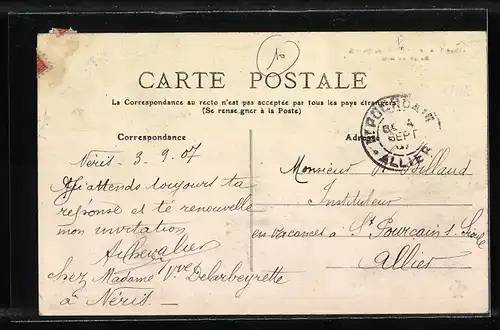 10
CARTE POSTALE
La Correspondance au recto n'est pas acceptée par tous les pays étrangers
(Se renseigner à la Poste)
Correspondance
Néris - 3. 9. 07
J'attends toujours ta
réponse et te renouvelle
mon invitation
AChevalier
chez Madame Vve Delarbeyrette
à Néris.
ST POURCAIN
4
SEPT
07
ALLIER
Monsieur Billaud
Instituteur
en vacances à St Pourcain s. Sioule
Allier